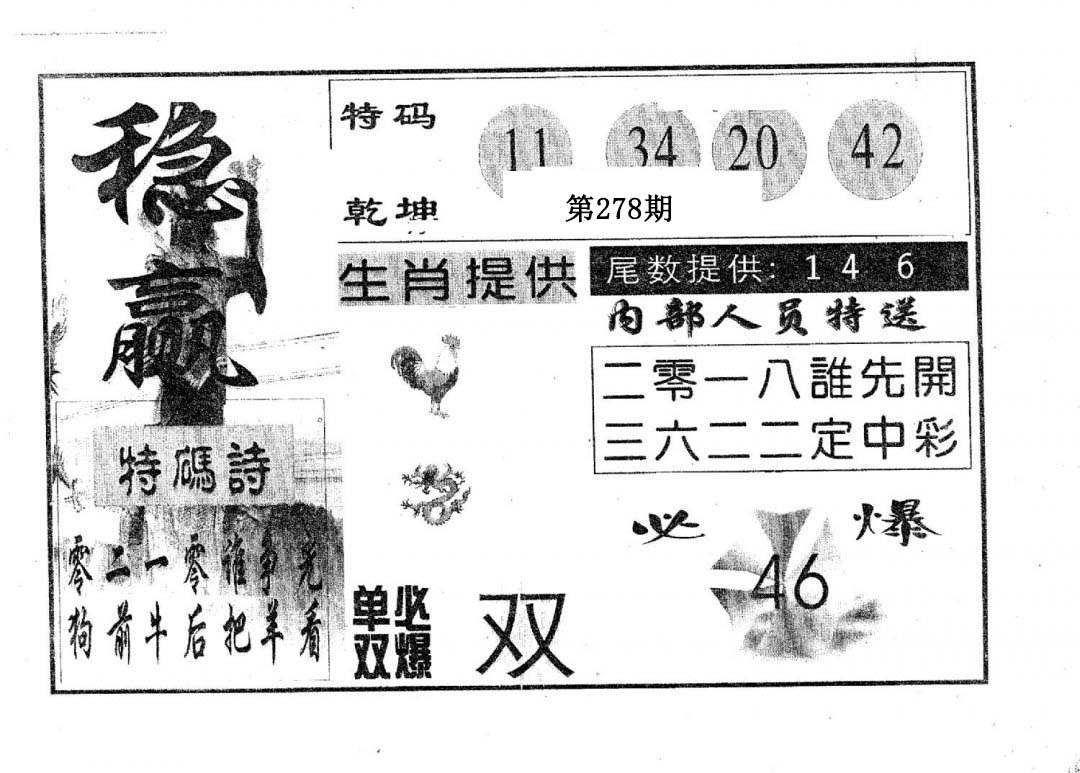 稳赢
特码
11 34 20 42
乾坤
第278期
生肖提供
尾数提供: 1 4 6
内部人员特送
二零一八誰先開
三六二二定中彩
特碼詩
零二一零谁争光
狗前牛后把羊看
必爆
46
单双
必爆
双